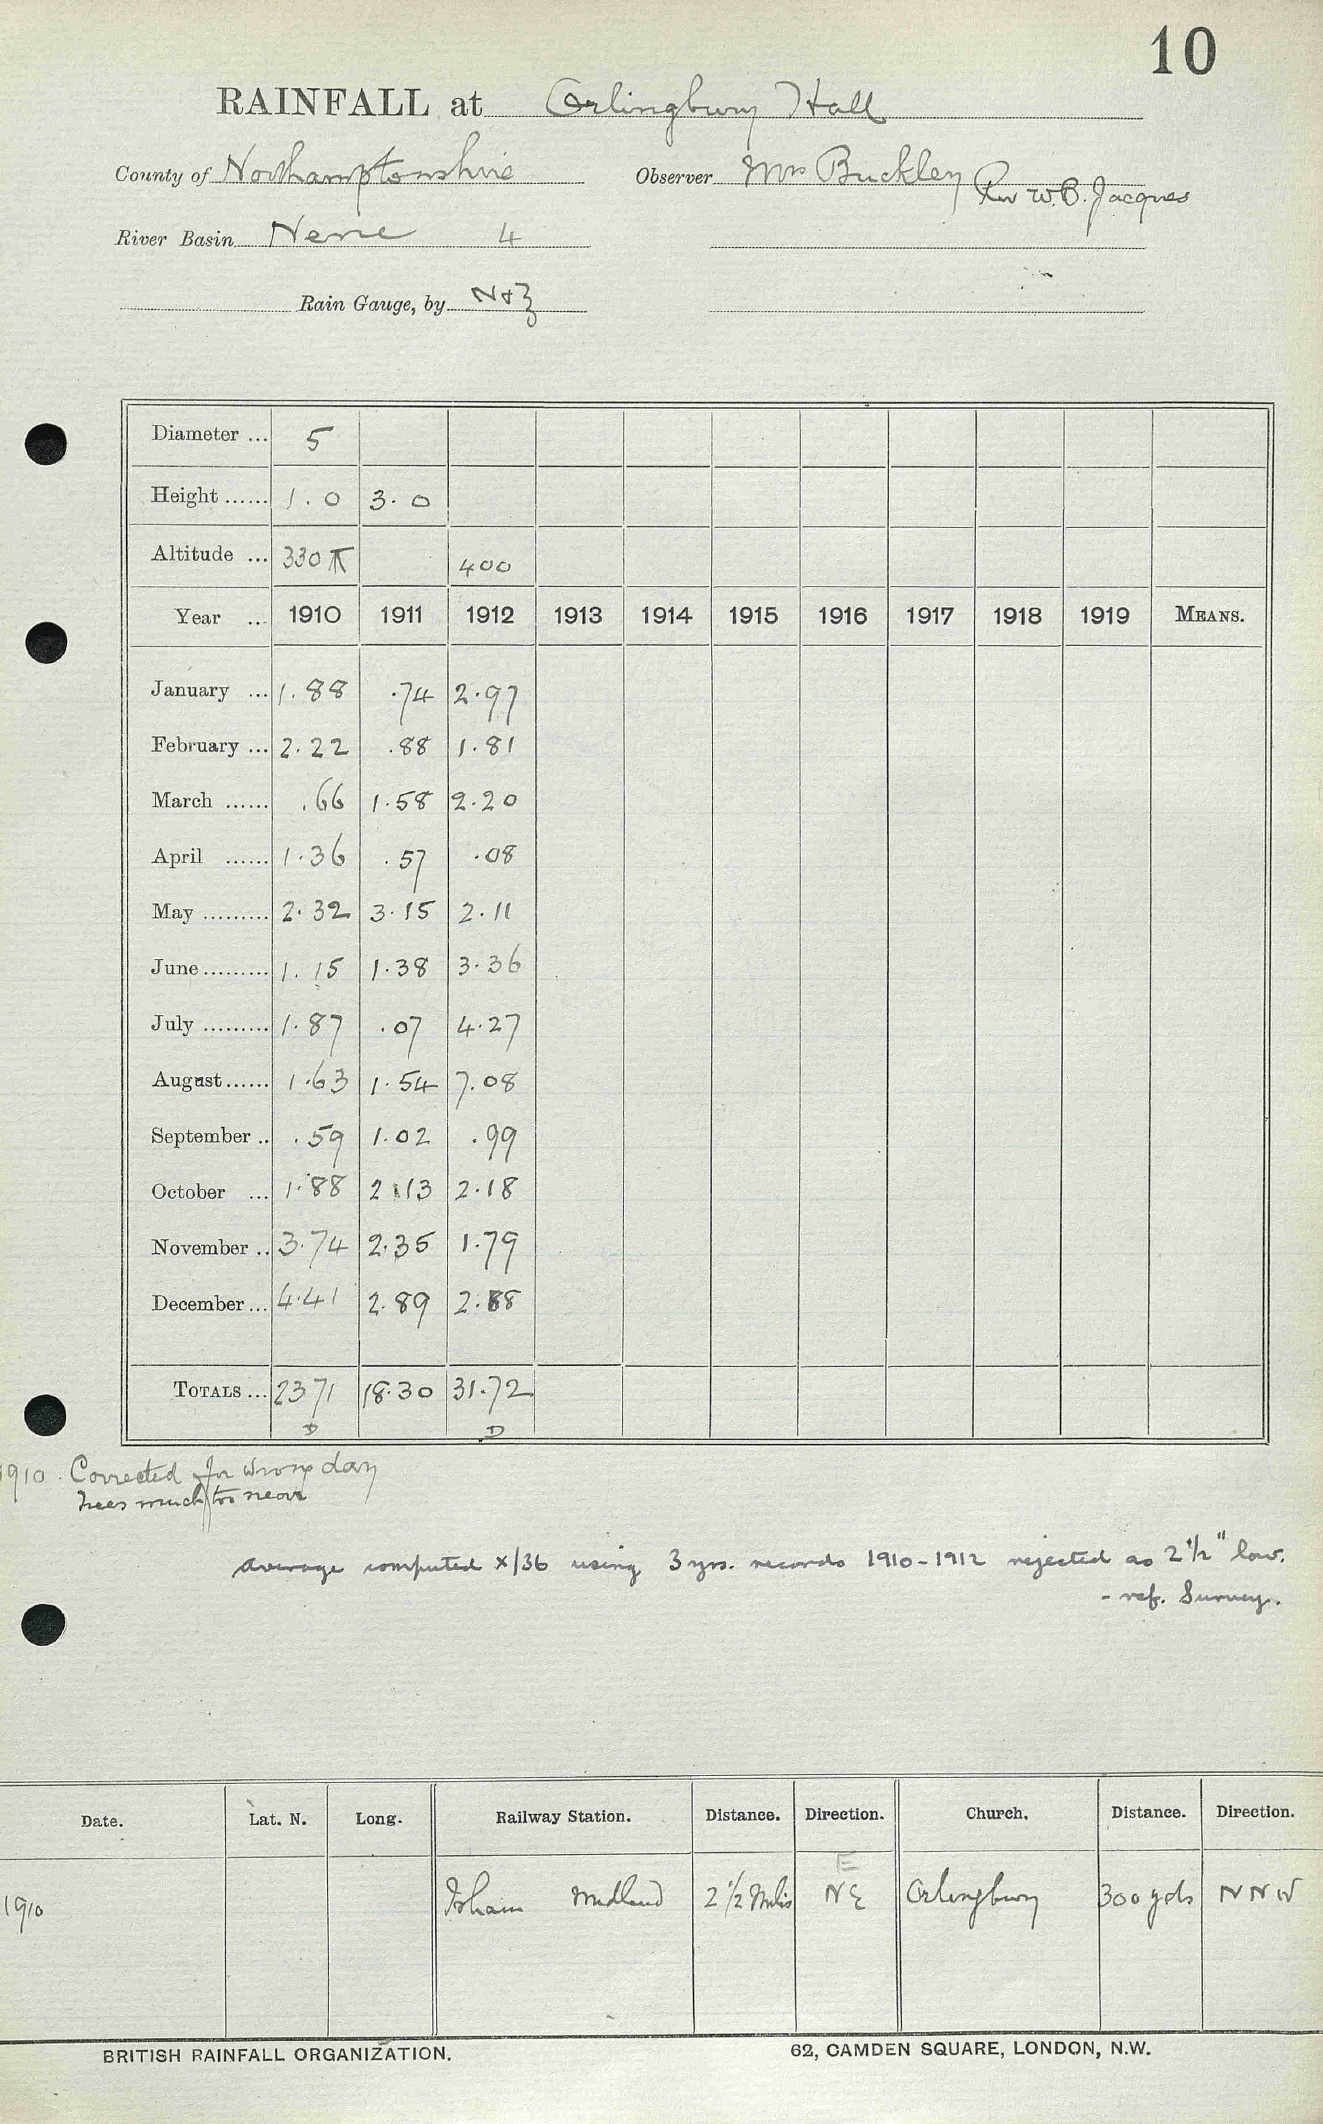 10
RAINFALL at Orlingbury Hall
County of Northamptonshire Observer Mrs Buckley Rev W.B. Jacques
River Basin Nene 4
Rain Gauge, by N & Z
Diameter ... 5
Height ...... 1.0 3.0
Altitude ... 330 400
Year ... 1910 1911 1912 1913 1914 1915 1916 1917 1918 1919 MEANS.
January ... 1.88 .74 2.97
February ... 2.22 .88 1.81
March ...... .66 1.58 2.20
April ...... 1.36 .57 .08
May ......... 2.32 3.15 2.11
June ......... 1.15 1.38 3.36
July ......... 1.87 .07 4.27
August ...... 1.63 1.54 7.08
September .. .59 1.02 .99
October ... 1.88 2.13 2.18
November .. 3.74 2.35 1.79
December ... 4.41 2.89 2.88
TOTALS ... 23 71 18.30 31.72
D D
1910. Corrected for wrong day
Trees much too near
Average computed x/36 using 3 yrs. records 1910-1912 rejected as 2 1/2" low.
- ref. Survey.
Date. Lat. N. Long. Railway Station. Distance. Direction. Church. Distance. Direction.
E
1910 Isham Midland 2 1/2 Miles NE Orlingbury 300 yds NNW
BRITISH RAINFALL ORGANIZATION. 62, CAMDEN SQUARE, LONDON, N.W.